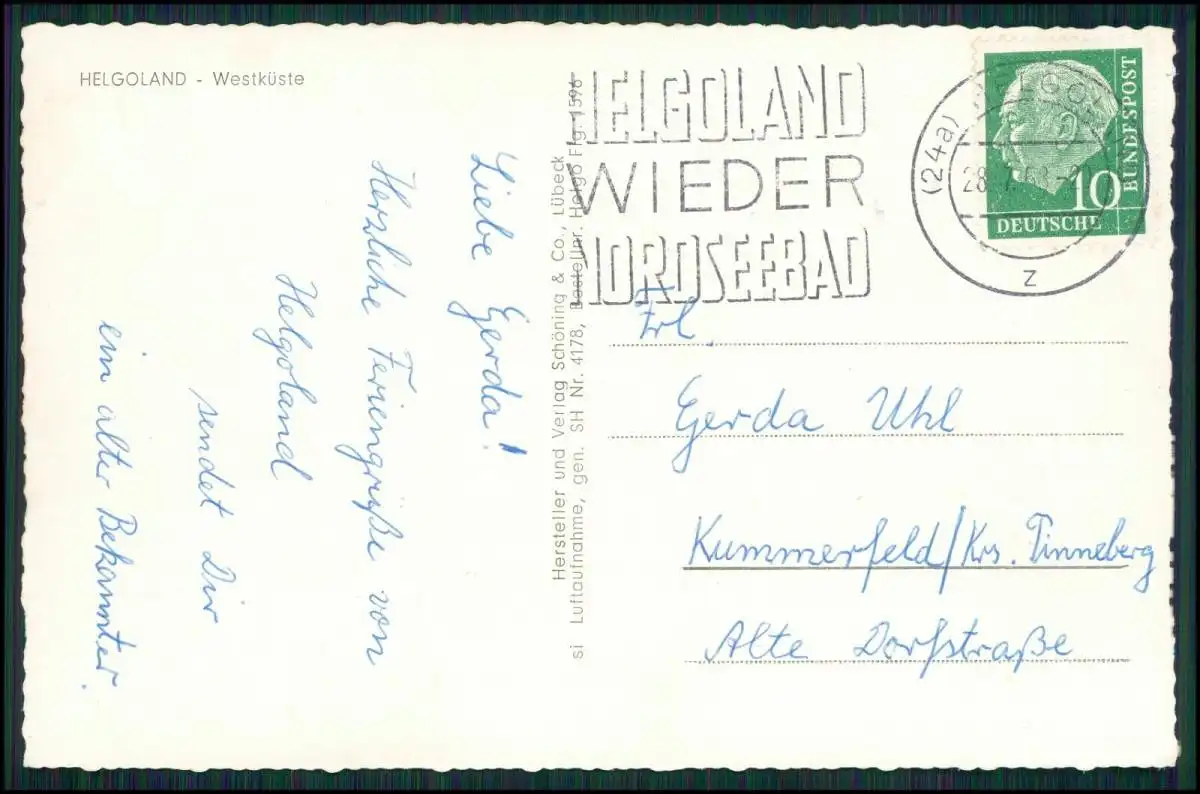 HELGOLAND - Westküste
HELGOLAND
WIEDER
NORDSEEBAD
(24a) HELGOLAND
28.
z
BUNDESPOST
10
DEUTSCHE
Liebe Gerda!
Herzliche Feriengrüße von
Helgoland
sendet Dir
ein alter Bekannter.
Hersteller und Verlag Schöning & Co., Lübeck
si Luftaufnahme, gen. SH Nr. 4178, Bestellnr. Helgo Flg. 1596
Frl.
Gerda Uhl
Kummerfeld/Krs. Pinneberg
Alte Dorfstraße